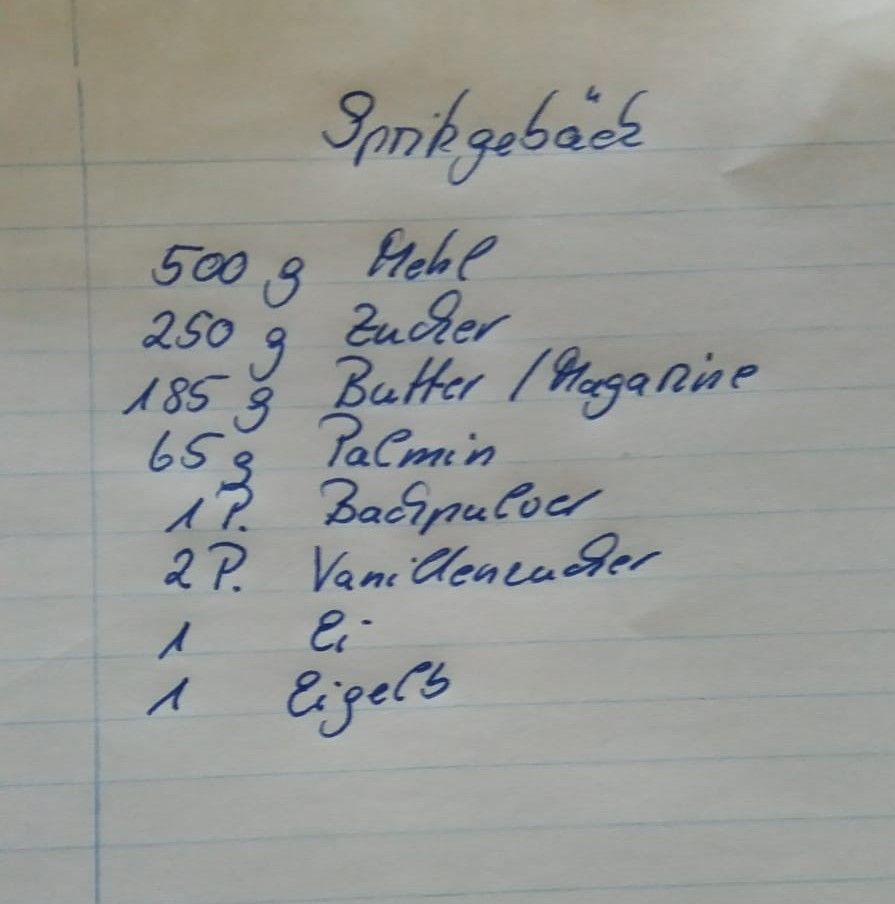 Spritzgebäck
500 g Mehl
250 g Zucker
185 g Butter / Magarine
65 g Palmin
1 P. Backpulver
2 P. Vanillenzucker
1 Ei
1 Eigelb